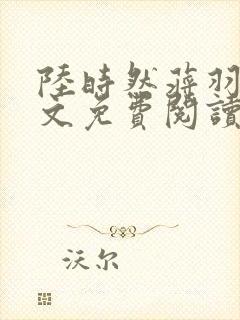 陸時然蔣羽
文免費閱讀
沃尔